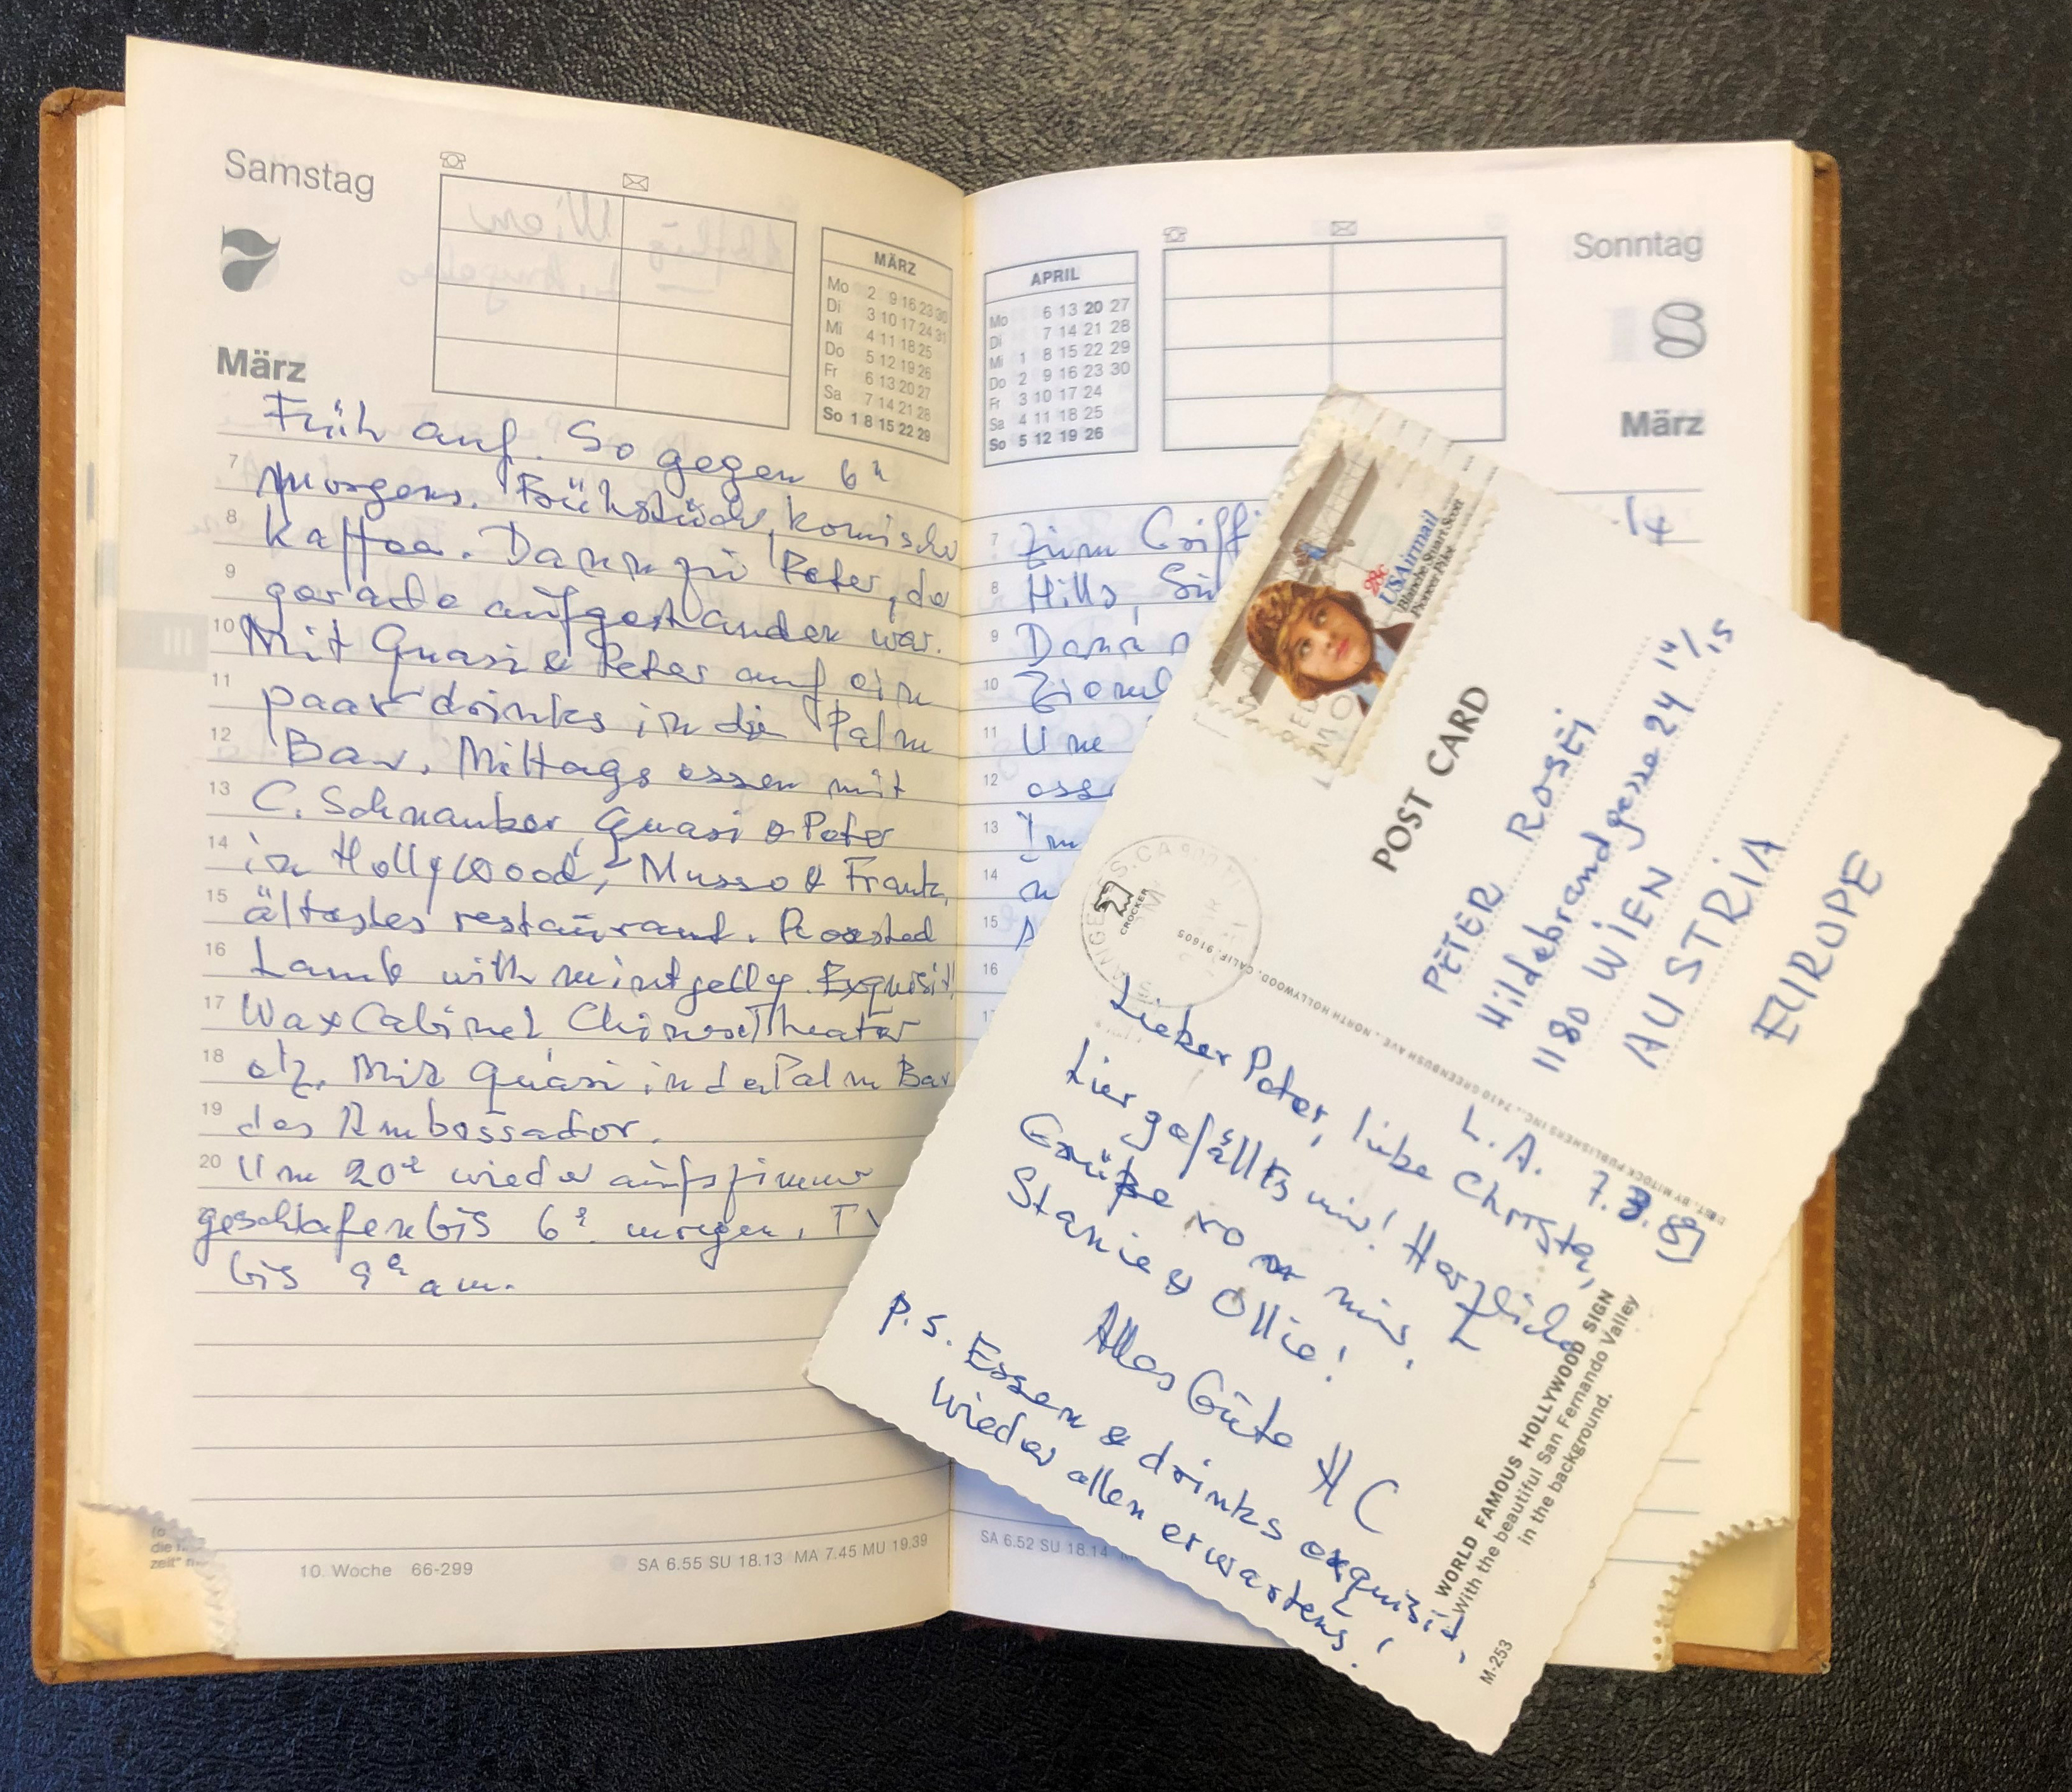 Samstag
7
März
MÄRZ
Mo 2 9 16 23 30
Di 3 10 17 24 31
Mi 4 11 18 25
Do 5 12 19 26
Fr 6 13 20 27
Sa 7 14 21 28
So 1 8 15 22 29
Früh auf. So gegen 6h
7 morgens. Frühstück, komische
8 Kaffee. Dann zu Peter, de
9 gerade aufgestanden war.
10 Mit Quasi & Peter auf ein
11 paar drinks in die Palm
12 Bar. Mittagsessen mit
13 C. Schnauber, Quasi & Peter
14 in Hollywood, Musso & Frank,
15 ältestes restaurant. Roasted
16 Lamb with mintgelly. Exquisit!
17 WaxCabinet, Chinese Theater
18 etz. Mit Quasi in de Palm Bar
19 des Ambassador.
20 Um 20h wieder aufs zimmer
geschlafen bis 6h morgen. TV
bis 9h am.
zeit"
10. Woche 66-299
SA 6.55 SU 18.13 MA 7.45 MU 19.39
Sonntag
8
März
APRIL
Mo 6 13 20 27
Di 7 14 21 28
Mi 1 8 15 22 29
Do 2 9 16 23 30
Fr 3 10 17 24
Sa 4 11 18 25
So 5 12 19 26
7 Zum Griffi
8 Hills,
9 Dann
10 Zieml
11 Um
12 esse
13 Im
14
15
16
SA 6.52 SU 18.14
28c
USAirmail
Blanche Stuart Scott
Pioneer Pilot
POST CARD
PETER ROSEI
Hildebrandgasse 24 14/15
1180 WIEN
AUSTRIA
EUROPE
CROCKER
DIST. BY MITOCK PUBLISHERS INC., 7410 GREENBUSH AVE., NORTH HOLLYWOOD, CALIF. 91605
L.A. 7.3.87
Lieber Peter, liebe Christa,
hier gefällts mir! Herzliche
Grüße von mir,
Stanie & Ollie!
Alles Gute HC
P.S. Essen & drinks exquisit,
wieder allen erwartens!
WORLD FAMOUS HOLLYWOOD SIGN
With the beautiful San Fernando Valley
in the background.
M-253